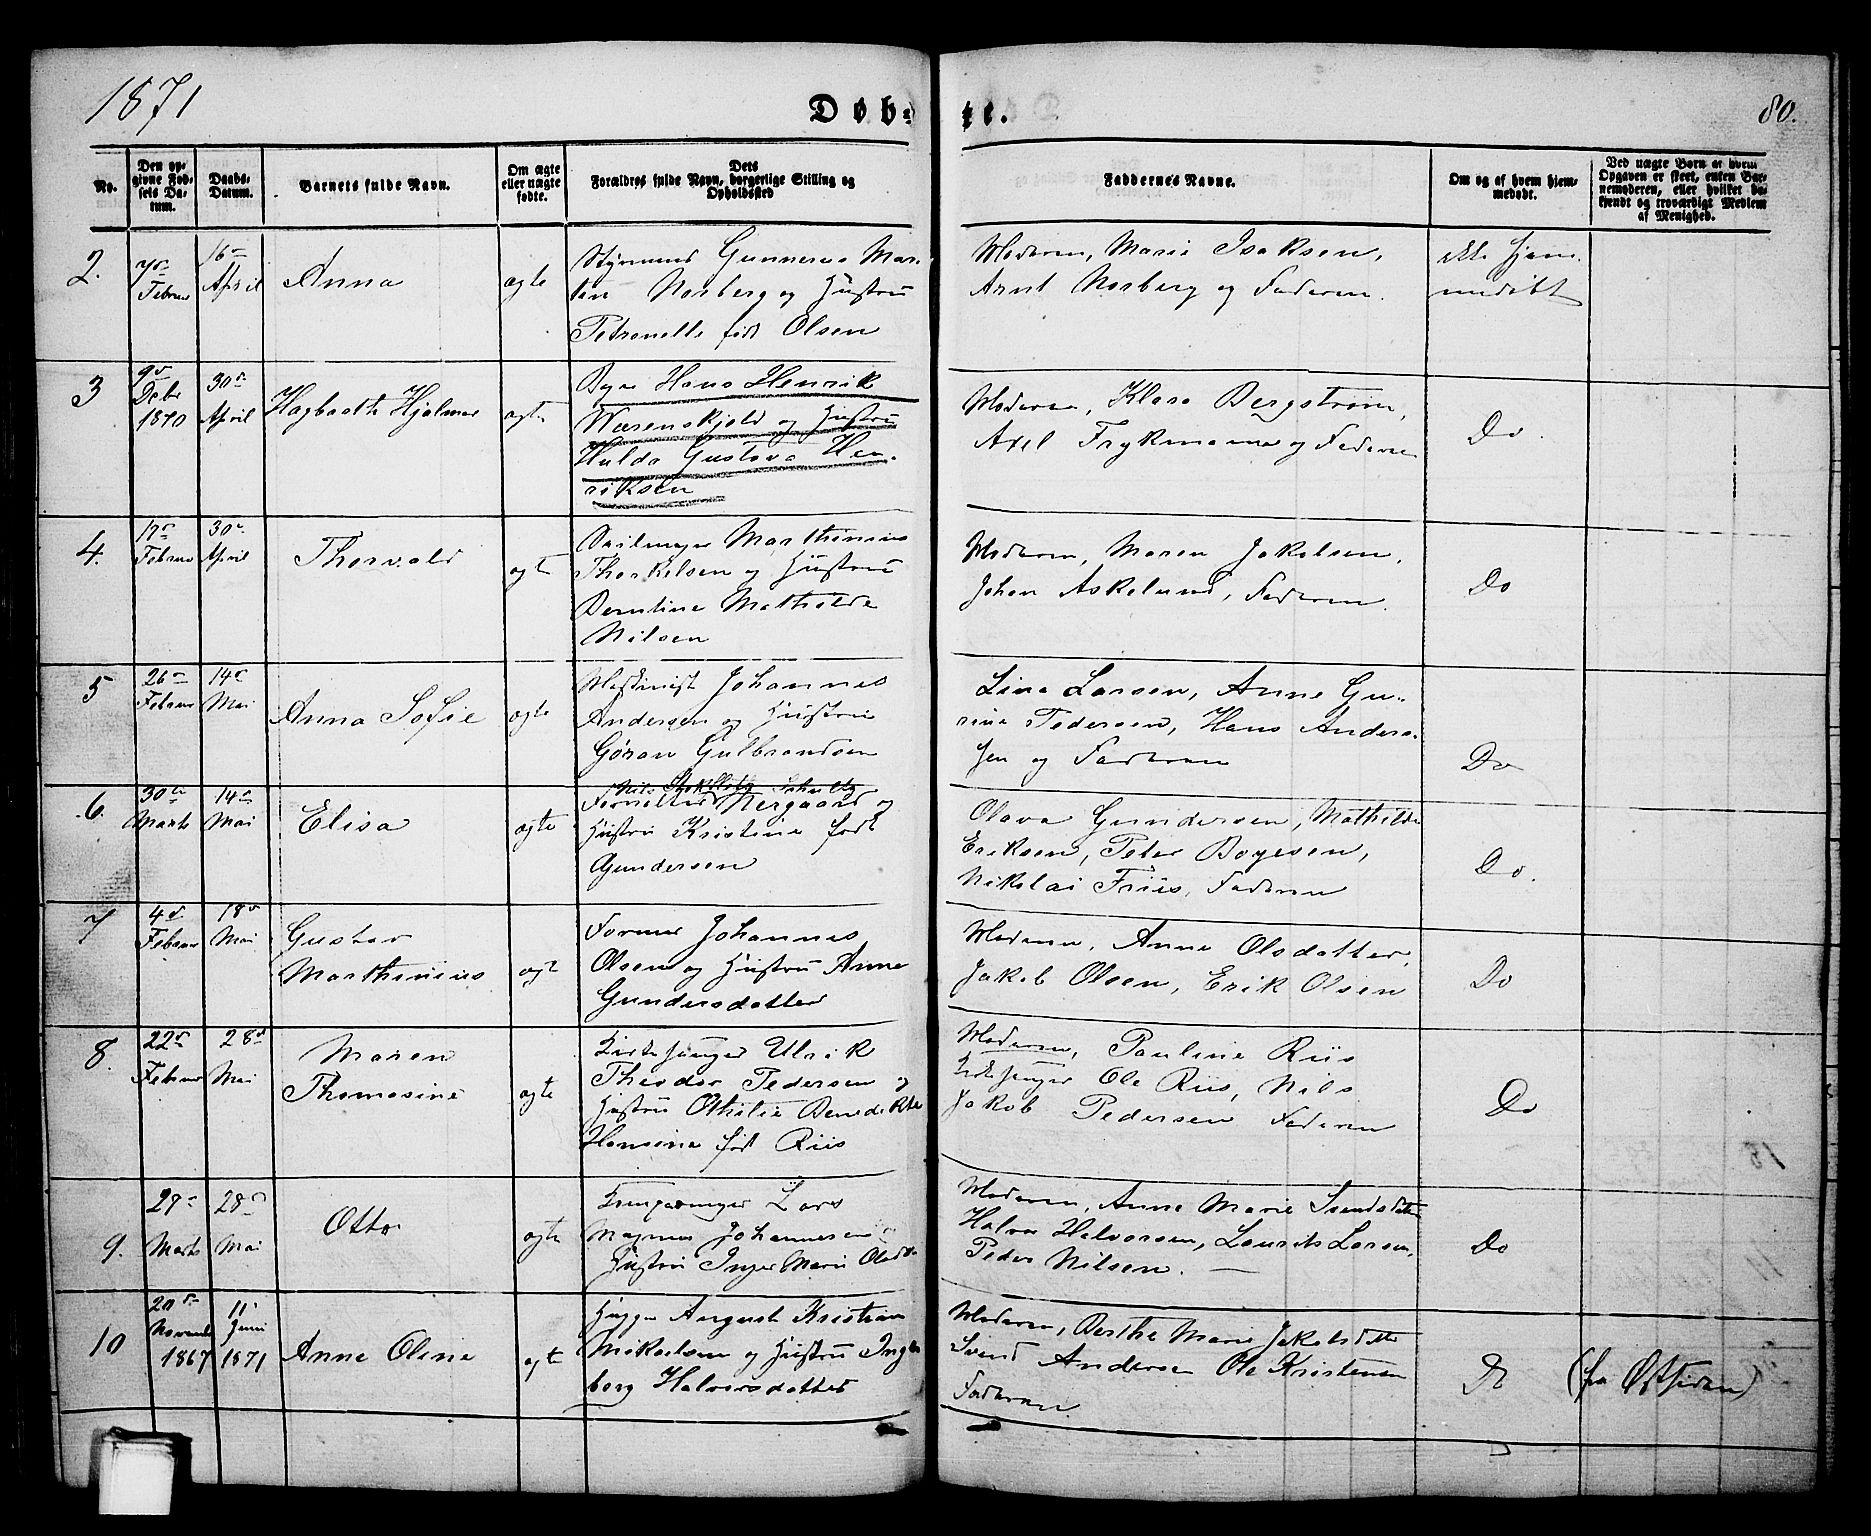 1871
Døb- te.
80.
No.
Den op-
givne Fød-
sels Da-
tum.
Daabs-
Datum.
Barnets fulde Navn.
Om ægte
eller uægte
fødte.
Dets
Forældres fulde Navn, borgerlige Stilling og
Opholdssted
Faddernes Navne.
Om og af hvem hjem-
medøbt.
Ved uægte Børn af hvem
Opgaven er skeet, enten Bar-
nemoderen, eller hvilket be-
kjendt og troværdigt Medlem
af Menighed.
2. 7de Februar
16de April
Anna
ægte
Styrmand Gunnerus Mar-
tin Norberg og Hustru
Petronelle født Olsen
Moderen, Marie Isaksen,
Arnt Norberg og Faderen.
ikke hjem-
medøbt
3 9de Debr 1870
30de April
Hagbarth Hjalmar
ægte
Hans Henrik
Værenskjold og Hustru
Hulda Gustava Hen-
riksen
Moderen, Klara Bergstrøm,
Axel Frykmann og Faderen
Do.
4. 17de Februar
30te April
Thorvald
ægte
Seilmager Marthinius
Thorkelsen og Hustru
Berntine Mathilde
Nilsen
Moderen, Maren Jakobsen,
Johan Askelund, Faderen.
Do
5 26de Februar
14de Mai
Anna Sofie
ægte
Maskinist Johannes
Andersen og Hustru
Gøran Gulbrandsen
Lina Larsen, Anne Gu-
rine Pedersen, Hans Anders-
sen og Faderen
Do
6. 30te Marts
14de Mai
Elisa
ægte
Nils Schultz
Nergaard og
Hustru Kristine født
Gundersen
Olava Gundersen, Mathilde
Eriksen, Peter Boyesen,
Nikolai Friis, Faderen
Do.
7 4de Februar
18de Mai
Gustav
Marthinius
ægte
Former Johannes
Olsen og Hustru Anne
Gundersdatter
Moderen, Anne Olsdatter,
Jakob Olsen, Erik Olsen
Do
8. 22de Februar
28de Mai
Maren
Thomasine
ægte
Kirkesanger Ulrik
Theodor Pedersen og
Hustru Othilie Benedikte
Hansine født Riis
Moderen, Pauline Riis
Kirkesanger Ole Riis, Nils
Jakob Pedersen Faderen
Do
9. 27de Marts
28de Mai
Otto
ægte
Lars
Magnus Johannesen
Hustru Inger Marie Olsdtr
Moderen, Anne Marie Svendsdatter
Halvor Halvorsen, Laurits Larsen,
Peder Nilsen. —
Do
10 20de Novembr 1867
11 Juni 1871
Anne Oline
ægte
August Kristian
Mikkelsen og Hustru Inge-
borg Halvorsdatter
Moderen, Berthe Marie Jakobsdatter
Svend Andersen Ole Kristensen
Faderen
Do
(fra Østsiden)